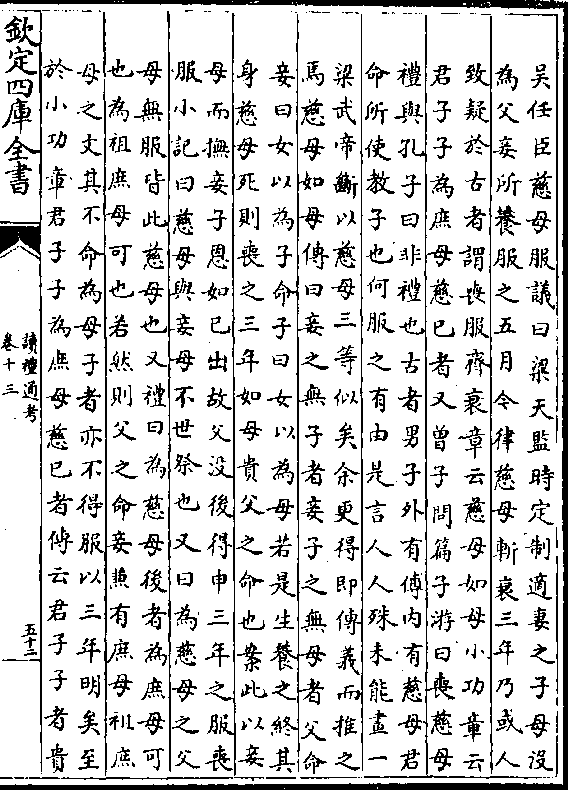 吴任臣慈母服議曰梁天監時定制適妻之子母没
為父妾所養服之五月令律慈母斬衰三年乃或人
致疑於古者謂喪服齊衰章云慈母如母小功章云
君子子為庶母慈已者又曾子問篇子游曰喪慈母
禮與孔子曰非禮也古者男子外有傅内有慈母君
命所使教子也何服之有由是言人人殊未能畫一
梁武帝斷以慈母三等似矣余更得即傳義而推之
焉慈母如母傳曰妾之無子者妾子之無母者父命
妾曰女以為子命子曰女以為母若是生養之終其
身慈母死則喪之三年如母貴父之命也案此以妾
母而撫妾子恩如已出故父没後得申三年之服喪
服小記曰慈母與妾母不世祭也又曰為慈母之父
母無服皆此慈母也又禮曰為慈母後者為庶母可
也為祖庶母可也若然則父之命妾兼有庶母祖庶
母之文其不命為母子者亦不得服以三年明矣至
於小功章君子子為庶母慈已者傳云君子子者貴
欽定四庫全書
讀禮通考
卷十三
五十三